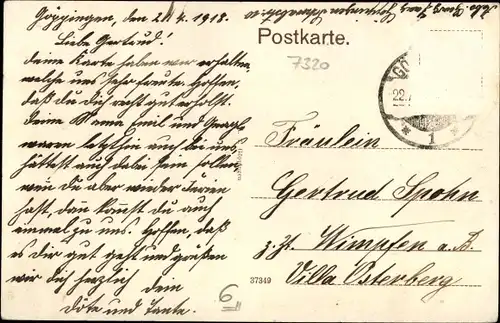 Göppingen, den 21/4. 1913.
Liebe Gertrud!
Deine Karte haben wir erhalten,
welche uns sehr freute. Hoffen,
daß Du Dich recht gut erholst.
Deine Mama Emil und
waren letzthin auch bei uns,
hättest auch dabei sein sollen,
wenn Du aber wieder
hast, dann kannst Du auch
einmal zu uns. Hoffen, daß
es Dir gut geht und grüßen
wir Dich herzlich Dein
Döte und Tante.
Postkarte.
7320
GÖ
22.
1
Fräulein
Gertrud Spohn
z. Zt. Wimpfen a. B.
Villa Osterberg
37349
6